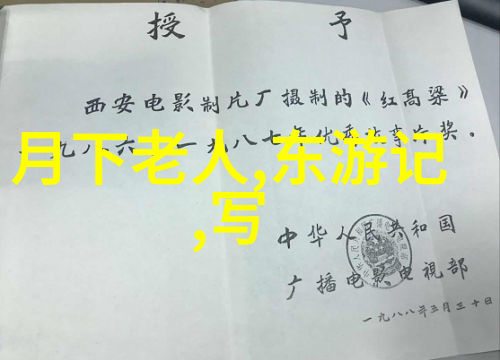 授 予
西安电影制片厂摄制的《红高粱》
一九八六—一九八七年优秀故事片奖。
月下老人,东游记
,写
中华人民共和国
广播电影电视部
一九八八年三月三十日